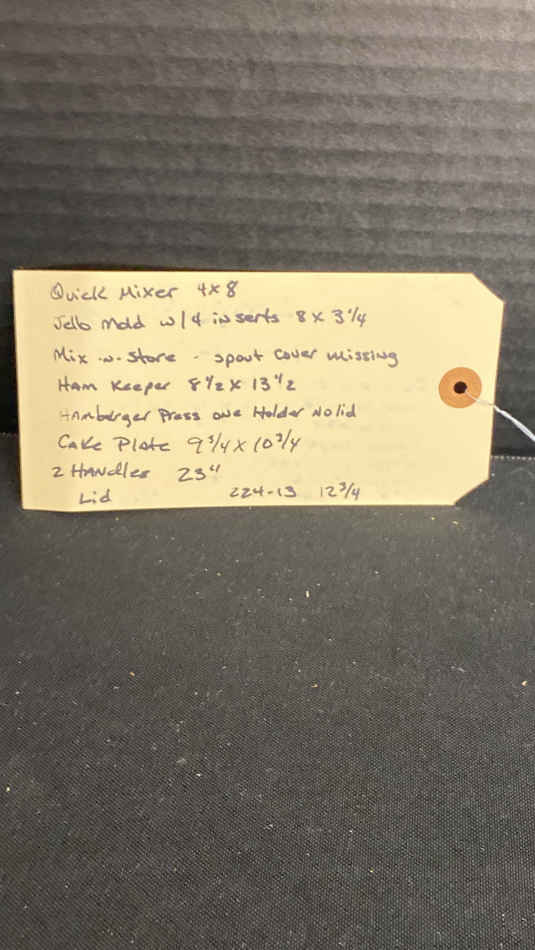 Quick Mixer 4x8
Jello Mold w/4 inserts 8 x 3 1/4
Mix-n-Store - spout cover missing
Ham Keeper 8 1/2 x 13 1/2
Hamberger Press one Holder No lid
Cake Plate 9 3/4 x 10 3/4
2 Handles 23"
Lid 224-13 12 3/4